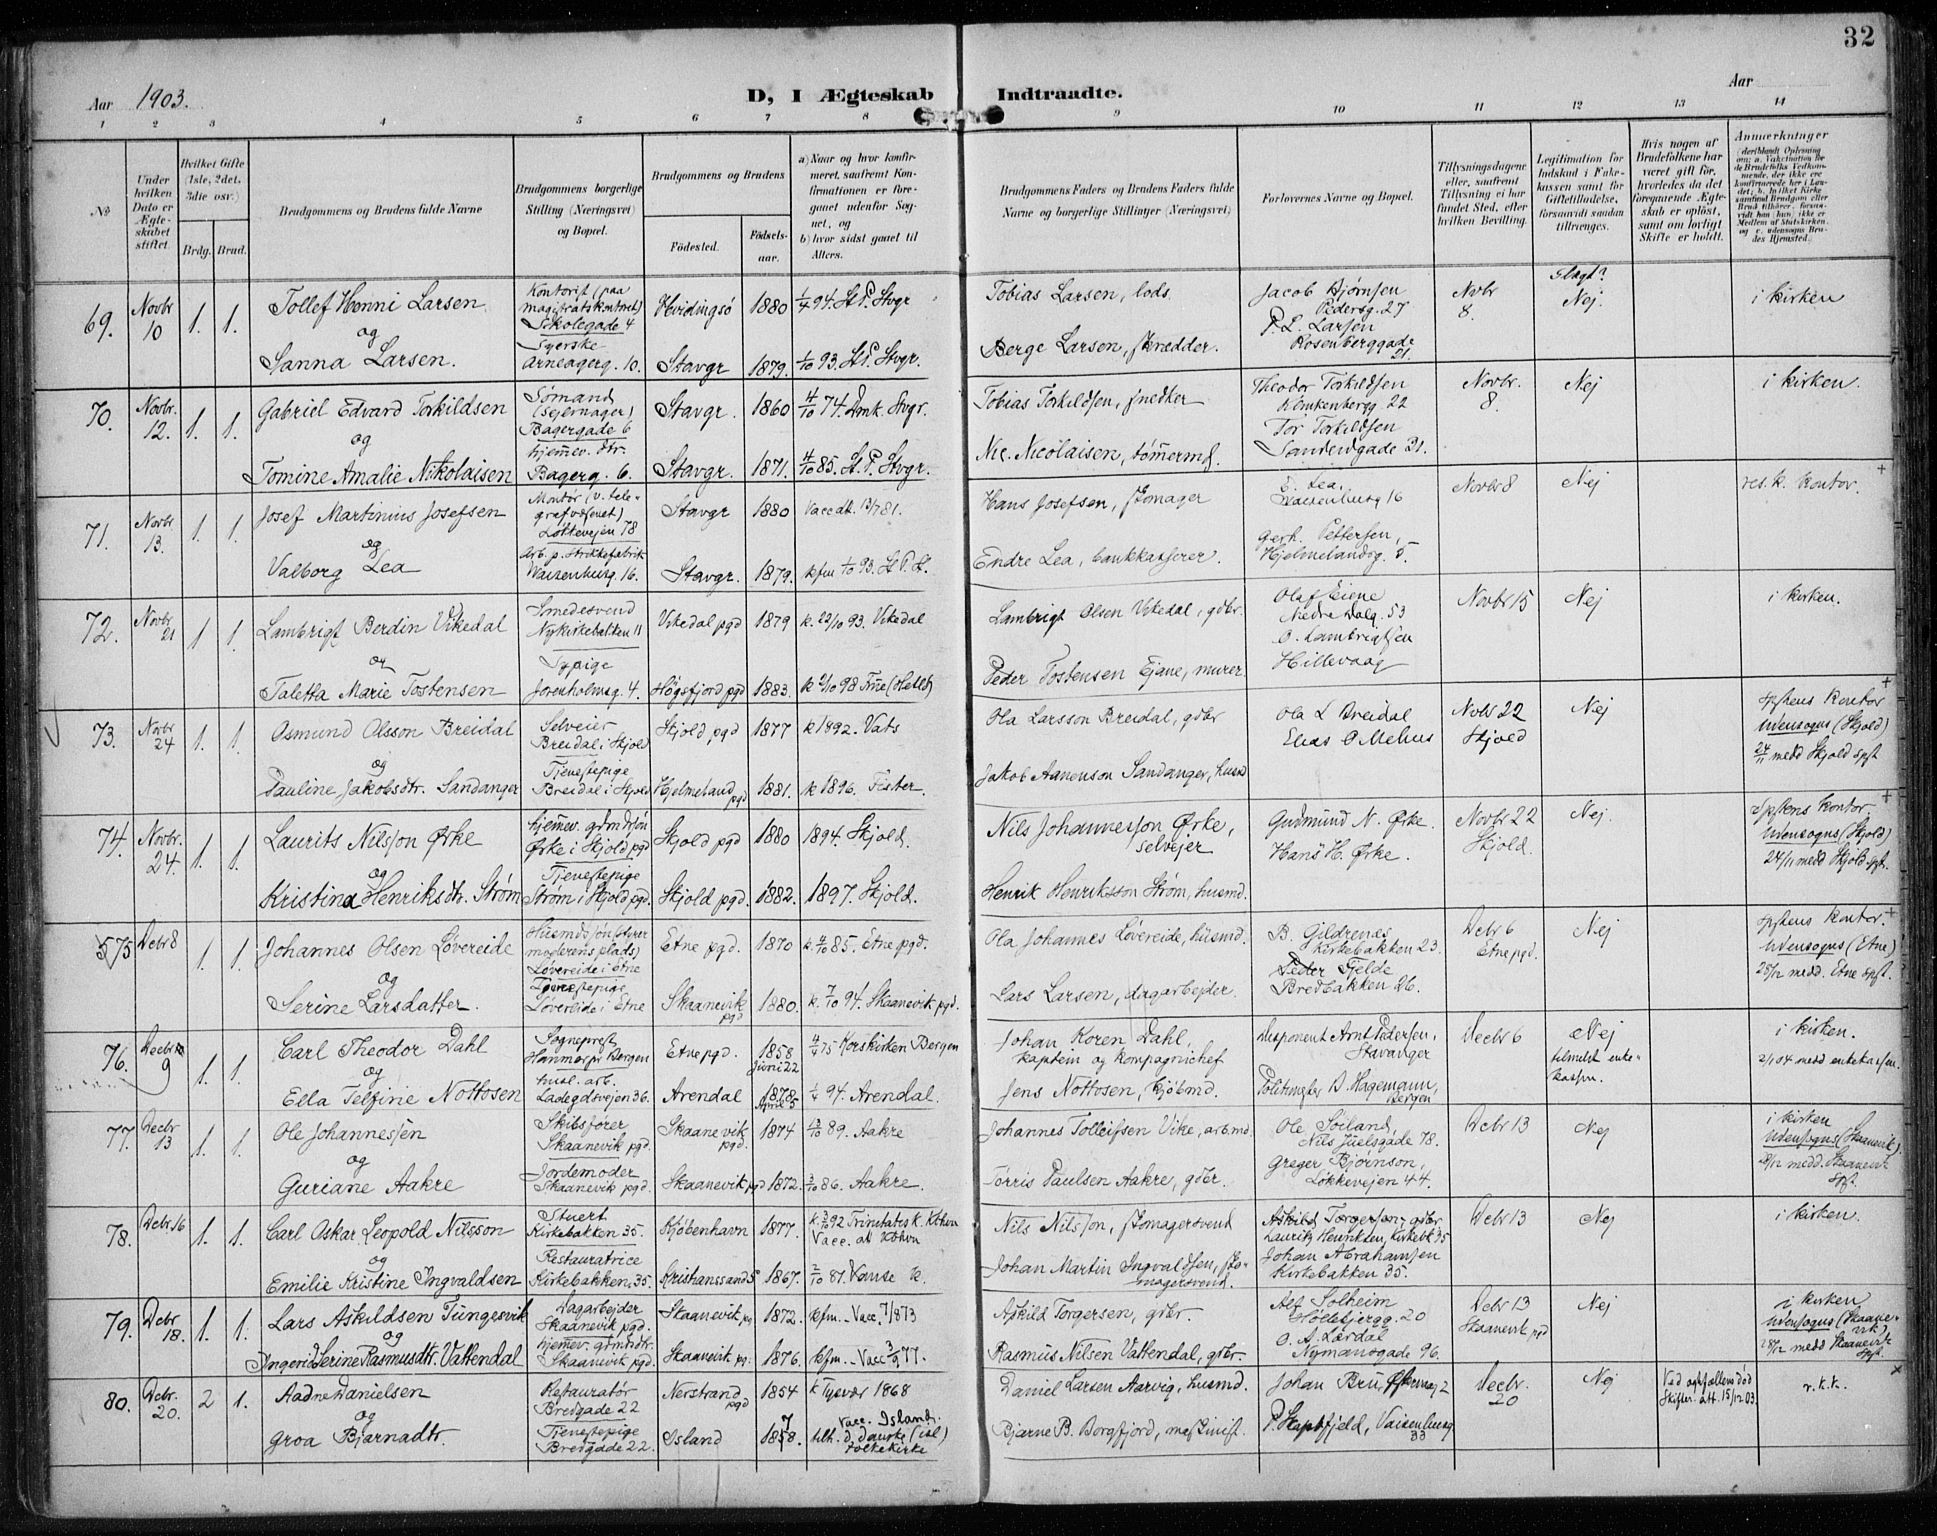 32
Aar 1903.
D, I Ægteskab Indtraadte.
Aar
1 2 3 4 5 6 7 8 9 10 11 12 13 14
No
Under hvilken Dato er Ægteskabet stiftet.
Hvilket Gifte (1ste, 2det, 3die osv.)
Brdg. Brud.
Brudgommens og Brudens fulde Navne
Brudgommens borgerlige Stilling (Næringsvei) og Bopæl.
Brudgommens og Brudens
Fødested. Fødselsaar.
a) Naar og hvor konfirmeret, saafremt Konfirmationen er foregaaet udenfor Sognet, og
b) hvor sidst gaaet til Alters.
Brudgommens Faders og Brudens Faders fulde Navne og borgerlige Stillinger (Næringsvei)
Forlovernes Navne og Bopæl.
Tillysningsdagene eller, saafremt Tillysning ei har fundet Sted, efter hvilken Bevilling.
Legitimation for Indskud i Enkekassen samt for Giftetilladelse, forsaavidt saadan tiltrænges.
Hvis nogen af Brudefolkene har været gift før, hvorledes da det foregaaende Ægteskab er opløst, samt om lovligt Skifte er holdt.
Anmerkninger
69. Novbr 10 1. 1. Tollef Honni Larsen
og
Sanna Larsen.
Kontorist (paa magistratskontoret)
Skolegade 4
Syerske
Arneagerg. 10.
Hvidingsø 1880 1/4 94. St. P. Stvgr
Stavgr 1879. 1/10 93. St. P. Stvgr.
Tobias Larsen, lods.
Berge Larsen, skrædder.
Jacob Bjørnsen
Pedersg. 27
P. L. Larsen
Rosenberggade 21.
Novbr 8.
Slægt?
Nej.
i kirken
70. Novbr. 12. 1. 1. Gabriel Edvard Torkildsen
og
Tomine Amalie Nikolaisen
Sømand
(Seiermager)
Bagergade 6
hjemmev. dtr.
Bagerg. 6.
Stavgr. 1860 4/10 74. Dmk. Stvgr.
Stavgr. 1871. 4/10 85. St. P. Stvgr.
Tobias Torkildsen, snedker
Nic. Nicolaisen, tømermd.
Theodor Torkildsen
Klinkenbergg 22
Tor Torkildsen
Sandeidgade 21.
Novbr. 8.
Nej
i kirken.
71. Novbr 13. 1. 1. Josef Martinius Josefsen
og
Valborg Lea
Montør (v. telegrafvæsenet)
Løkkevejen 78
Arb. p. Strikkefabrik
Waisenhusg. 16.
Stavgr 1880 Vacc.att. 13/7 81.
Stavgr. 1879. kfm 1/10 93. St. P. St.
Hans Josefsen, skomager
Endre Lea, bankkasserer.
E. Lea,
Waisenhusg 16
Gerh. Pettersen,
Hjelmelandsg. 5
Novbr 8
Nej
res. k. kontor. +
72. Novbr 21 1. 1. Lambrigt Berdin Vikedal
og
Taletta Marie Tostensen
Smedesvend
Nykirkebakken 11
Sypige
Jorenholmsg. 4.
Vikedal pgd 1879 k. 22/10 93. Vikedal
Høgsfjord pgd 1883. k 2/10 98 Frue (Hetl.)
Lambrigt Olsen Vikedal, gdbr.
Peder Tostensen Ejane, murer
Olaf Eiene
Nedre Dalg. 53
O. Lambrigtsen
Hillevaag
Novbr 15
Nej
i kirken.
73. Novbr 24 1. 1. Osmund Olsson Breidal
og
Pauline Jakobsdtr. Sandanger
Selveier
Breidal i Skjold
Tjenestepige
Breidal i Skjold
Skjold pgd 1877 k 1892. Vats
Hjelmeland pgd 1881. k 1896. Fister.
Ola Larsson Breidal, gdbr
Jakob Aanenson Sandanger, husmd
Ola L Breidal
Elias O Mehus
Novbr 22
Skjold
Nej
Spstens kontor +
Udensogns (Skjold)
24/11 medd Skjold spst
74. Novbr. 24. 1. 1. Laurits Nilsson Ørke
og
Kristina Henriksdtr. Strøm
hjemmev. grdmdsøn
Ørke i Skjold pgd
Tjenestepige
Strøm i Skjold pgd.
Skjold pgd 1880 1894. Skjold.
Skjold pgd. 1882. 1897. Skjold.
Nils Johannesson Ørke,
selvejer
Henrik Henriksson Strøm, husmd.
Gudmund N. Ørke.
Hans H. Ørke.
Novbr 22
Skjold.
Nej.
Spstens kontor +
Udensogns (Skjold)
24/11 medd Skjold spst.
75 Debr 8 1. 1. Johannes Olsen Løvereide
og
Serine Larsdatter
Husmdssøn (styrer moderens plads)
Løvereide i Etne
Tjenestepige
Løvereide i Etne
Etne pgd. 1870 k 4/10 85. Etne pgd.
Skaanevik pgd 1880. k. 7/10 94. Skaanevik pgd.
Ola Johannes Løvereide, husmd.
Lars Larsen, dagarbejder.
B. Gildrenæs
Kirkebakken 23.
Peder Fjelde
Bredbakken 26.
Debr 6
Etne pgd.
Nej
Spstens kontor. +
Udensogns (Etne)
25/12 medd. Etne spst.
76. Decbr 9 1. 1. Carl Theodor Dahl
og
Ella Telfine Nottosen
Sogneprest
Hammerfest Bergen
husl. arb.
Ladegdsvejen 36.
Etne pgd. 1858 Juni 22 4/4 75 Korskirken Bergen
Arendal 1878 April 5 1/4 94. Arendal.
Johan Koren Dahl,
kaptein og kompagnichef
Jens Nottosen, kjøbmd.
Disponent Arnt Pedersen,
Stavanger
Politimester D. Hagemann,
Bergen
Decbr 6
Nej
tilmeldt enkekassen.
i kirken.
2/1 04 medd enkekassen.
77. Decbr 13 1. 1. Ole Johannessen
og
Guriane Aakre
Skibsfører
Skaanevik pgd.
Jordemoder
Skaanevik pgd.
Skaanevik pgd. 1874 3/10 89. Aakre
Skaanevik pgd 1872. 3/10 86. Aakre.
Johannes Tolleifsen Vike, arb.md.
Tørris Paulsen Aakre, gdbr.
Ole Søiland,
Nils Juelsgade 78.
Greger Bjørnson,
Løkkevejen 44.
Debr 13
Nej
i kirken
Udensogns (Skaanevik).
medd. Skaanevik spst.
78. Debr. 16 1. 1. Carl Oskar Leopold Nilsson
og
Emilie Kristine Ingvaldsen
Stuert
Kirkebakken 35.
Restauratrice
Kirkebakken 35.
Kjøbenhavn 1877. k. 2/10 92 Trinitatis k. Kbhvn
Vacc. att Kbhvn
Kristianssand S 1867. 2/10 81. Vanse k.
Nils Nilsson, skomagersvend
Johan Martin Ingvaldsen, skomagersvend.
Askild Torgersen, gdbr
Laurits Henriksen, Kirkebk 35
Johan Abrahamsen
Kirkebakken 35.
Debr 13
Nej
i kirken.
79. Debr 18. 1. 1. Lars Askildsen Tungesvik
og
Ingerid Serine Rasmusdtr. Vattendal
Dagarbejder
Skaanevik pgd.
hjemmev. grdmdsdtr.
Skaanevik pgd.
Skaanevik pg 1872. kfm. - Vacc. 7/1 873
Skaanevik pg. 1876. kfm. - Vacc 3/9 77.
Askild Torgersen, gdbr.
Rasmus Nilsen Vattendal, grbr.
Alf Solheim
Høllebjergg. 20
O. A. Lærdal
Nymansgade 96.
Debr 13
Skaanevik pgd
Nej
i kirken
Udensogns (Skaanevik
medd Skaanevik spst.
80. Debr. 20. 2 1. Aadne Danielsen
og
Groa Bjarnadtr.
Restauratør
Bredgade 22
Tjenestepige
Bredgade 22.
Nerstrand pgd 1854 k Tysvær 1868
Island 1858. 7 Vacc. Island.
tilh. d. danske (isl) folkekirke
Daniel Larsen Aarvig, husmd.
Bjarne B. Borgfjord, maskinist.
Johan Bru, Østervåg 2
P. Skapsfjeld, Vaisenhusg 33
Decbr. 20
Nej
Ved ægtefællens død
Skifter. att. 15/12 03.
r.k.k. ×